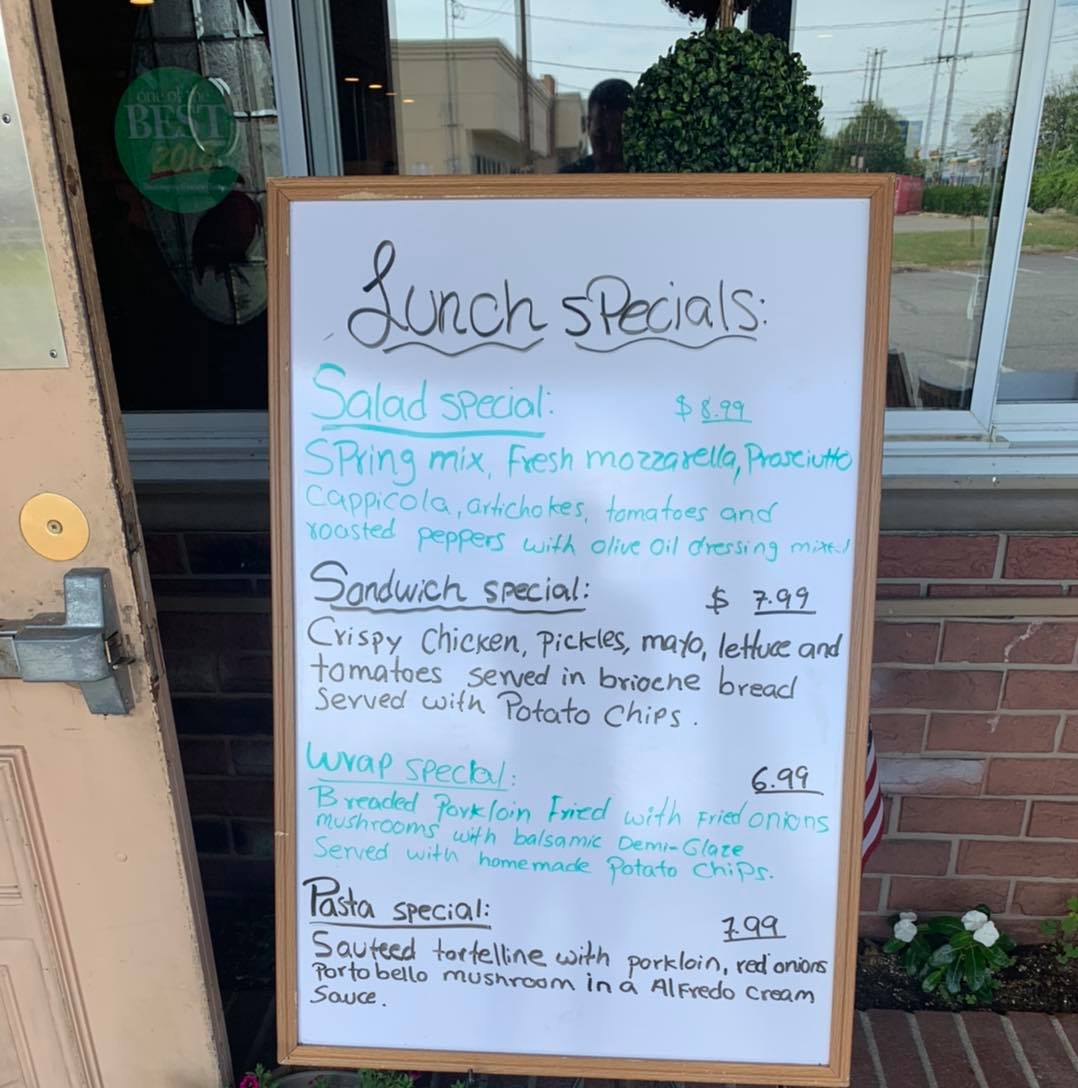 one of the
BEST
Lunch specials:
Salad special: $ 8.99
Spring mix, Fresh mozzarella, Prosciutto
Cappicola, artichokes, tomatoes and
roasted peppers with olive oil dressing mixed
Sandwich special: $ 7.99
Crispy Chicken, Pickles, mayo, lettuce and
tomatoes served in brioche bread
Served with Potato Chips.
Wrap special: 6.99
Breaded Porkloin Fried with Fried onions
mushrooms with balsamic Demi-Glaze
Served with homemade Potato Chips.
Pasta special: 7.99
Sauteed tortelline with porkloin, red onions
Portobello mushroom in a Alfredo Cream
Sauce.